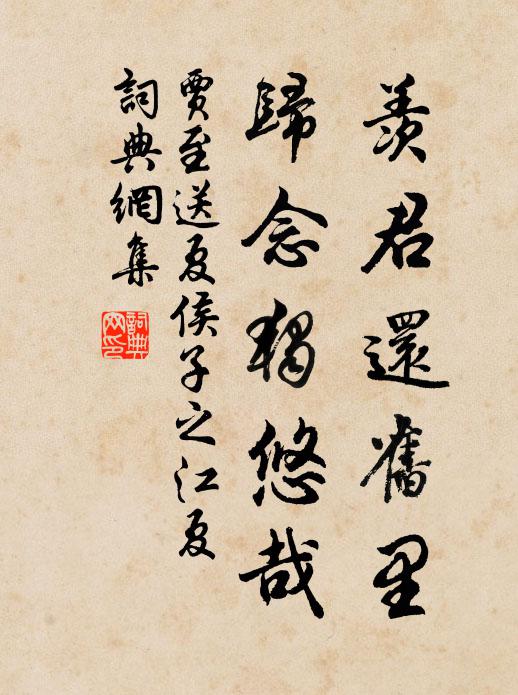 羨君還舊里
歸念獨悠哉
賈至送夏侯子之江夏
詞典網集
詞典
网印